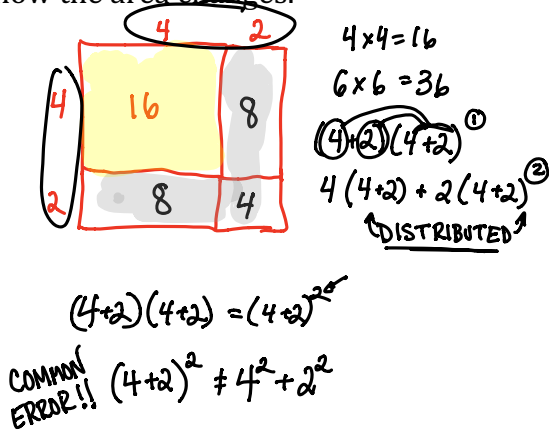 how the area changes.
4 2
4
16
8
2
8
4
4×4=16
6×6=36
(4+2)(4+2) ①
4(4+2) + 2(4+2) ②
DISTRIBUTED
(4+2)(4+2) = (4+2)²
COMMON
ERROR!!
(4+2)² ≠ 4²+2²